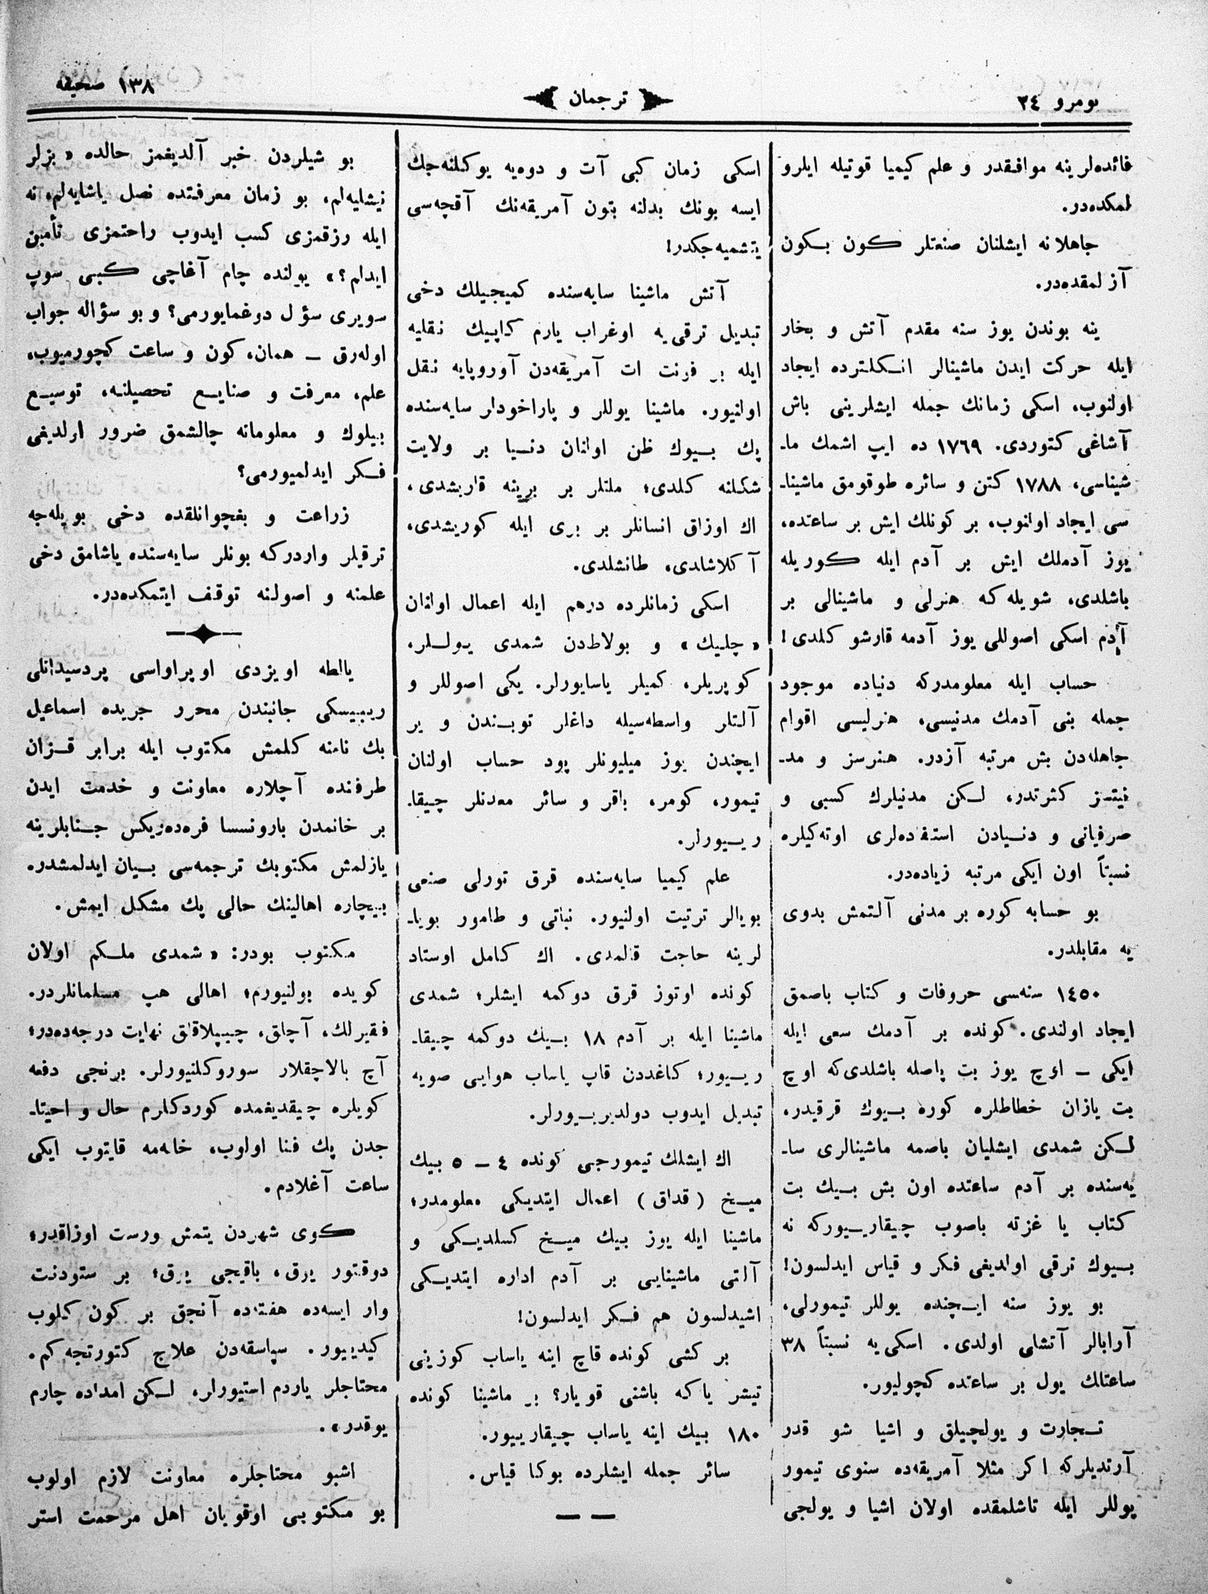 نومرو ٢٤
ترجمان
١٣٨ صحیفه
فائده‌لرینه موافقدر و علم کیمیا قوتیله ایلرو
لمکده‌در.
جاهلانه ایشلنان صنعتلر کون بکون
آزلمقده‌در.
ینه بوندن یوز سنه مقدم آتش و بخار
ایله حرکت ایدن ماشینالر انکلتره‌ده ایجاد
اولنوب، اسکی زمانك جمله ایشلرینی باش
آشاغی کتوردی. ١٧٦٩ ده ایپ اشمك ما-
شیناسی، ١٧٨٨ کتن و سائره طوقومق ماشینا-
سی ایجاد اولنوب، بر کونلك ایش بر ساعتده،
یوز آدملك ایش بر آدم ایله کوریله
باشلدی، شویله‌که هنرلی و ماشینالی بر
آدم اسکی اصوللی یوز آدمه قارشو کلدی!
حساب ایله معلومدرکه دنیاده موجود
جمله بنی آدمك مدنیسی، هنرلیسی اقوام
جاهله‌دن بش مرتبه آزدر. هنرسز و مد-
نیتسز کثرتدر، لکن مدنیلرك کسبی و
صرفیاتی و دنیادن استفاده‌لری اوته‌کیلره
نسبتاً اون ایکی مرتبه زیاده‌در.
بو حسابه کوره بر مدنی آلتمش بدوی
یه مقابلدر.
١٤٥٠ سنه‌سی حروفات و کتاب باصمق
ایجاد اولندی. کونده بر آدمك سعی ایله
ایکی — اوچ یوز بت پاصله باشلدی‌که اوچ
بت یازان خطاطلره کوره بیوك قرقیدر،
لکن شمدی ایشلیان باصمه ماشینالری سا-
یه‌سنده بر آدم ساعتده اون بش بیك بت
کتاب یا غزته باصوب چیقارییورکه نه
بیوك ترقی اولدیغی فکر و قیاس ایدلسون!
بو یوز سنه ایچنده یوللر تیمورلی،
آرابالر آتشلی اولدی. اسکی‌یه نسبتاً ٣٨
ساعتلك یول بر ساعتده کچولیور.
تجارت و یولچیلق و اشیا شو قدر
آرتدیلرکه اکر مثلا آمریقه‌ده سنوی تیمور
یوللر ایله تاشلمقده اولان اشیا و یولجی
اسکی زمان کبی آت و دوه‌یه یوکلنه‌جك
ایسه بونك بدلنه بتون آمریقه‌نك آقچه‌سی
یتشمیه‌جکدر!
آتش ماشینا سایه‌سنده کمیجیلك دخی
تبدیل ترقی‌یه اوغراب یارم کاپیك نقلیه
ایله بر فرنت ات آمریقه‌دن آوروپایه نقل
اولنیور. ماشینا یوللر و پاراخودلر سایه‌سنده
پك بیوك ظن اولنان دنیا بر ولایت
شکلنه کلدی؛ ملتلر بر برینه قاریشدی،
اك اوزاق انسانلر بر بری ایله کوریشدی،
آکلاشلدی، طانشلدی.
اسکی زمانلرده درهم ایله اعمال اولنان
«چلیك» و بولاط‌دن شمدی یوللر،
کوپریلر، کمیلر یاساپورلر. یکی اصوللر و
آلتلر واسطه‌سیله داغلر توبندن و یر
ایچندن یوز میلیونلر پود حساب اولنان
تیمور، کومر، باقر و سائر معدنلر چیقا-
رییورلر.
علم کیمیا سایه‌سنده قرق تورلی صنعی
بویالر ترتیت اولنیور. نباتی و طامور بویا-
لرینه حاجت قالمدی. اك کامل اوستاد
کونده اوتوز قرق دوکمه ایشلر؛ شمدی
ماشینا ایله بر آدم ١٨ بیك دوکمه چیقا-
رییور؛ کاغددن قاپ یاساب هوایی صویه
تبدیل ایدوب دولدیرییورلر.
اك ایشلك تیمورجی کونده ٤ — ٥ بیك
میخ (قداق) اعمال ایتدیکی معلومدر؛
ماشینا ایله یوز بیك میخ کسلدیکی و
آلتی ماشینایی بر آدم اداره ایتدیکی
اشیدلسون هم فکر ایدلسون!
بر کشی کونده قاچ اینه یاساب کوزینی
تیشر یاکه باشنی قویار؟ بر ماشینا کونده
١٨٠ بیك اینه یاساب چیقارییور.
سائر جمله ایشلرده بوکا قیاس.
بو شیلردن خبر آلدیغمز حالده «بزلر
نیشلیه‌لم، بو زمان معرفتده نصل یاشایه‌لم، نه
ایله رزقمزی کسب ایدوب راحتمزی تأمین
ایدام؟» یولنده چام آغاچی کبی سوپ
سویری سؤل دوغمایورمی؟ و بو سؤاله جواب
اوله‌رق — همان، کون و ساعت کچورمیوب،
علم، معرفت و صنایع تحصیلنه، توسیع
بیلوك و معلوماته چالشمق ضرور اولدیغی
فکر ایدلمیورمی؟
زراعت و بغچوانلقده دخی بویله‌جه
ترقیلر واردرکه بونلر سایه‌سنده یاشامق دخی
علمنه و اصولنه توقف ایتمکده‌در.
یالطه اویزدی اوپراواسی پردسیداتلی
ریبیسکی جانبندن محرر جریده اسماعیل
بك نامنه کلمش مکتوب ایله برابر قزان
طرفنده آچلاره معاونت و خدمت ایدن
بر خانمدن بارونسسا فره‌ده‌ریکس جنابلرینه
یازلمش مکتوبك ترجمه‌سی بیان ایدلمشدر.
بیچاره اهالینك حالی پك مشکل ایمش.
مکتوب بودر: «شمدی ملکم اولان
کویده بولنیورم؛ اهالی هپ مسلمانلردر.
فقیرلك، آچلق، چیپلاقلق نهایت درجه‌ده‌در؛
آچ بالاچقلار سوروکلنیورلر. برنجی دفعه
کویلره چیقدیغمده کوردکلرم حال و احتیا-
جدن پك فنا اولوب، خانه‌مه قایتوب ایکی
ساعت آغلادم.
کوی شهردن یتمش ورست اوزاقدر؛
دوقتور یرق، باقیجی یرق؛ بر ستودنت
وار ایسه‌ده هفته‌ده آنجق بر کون کلوب
کیدییور. سپاسقه‌دن علاج کتورتجه‌کم.
محتاجلر یاردم استیورلر، لکن امداده چارم
یوقدر».
اشبو محتاجلره معاونت لازم اولوب
بو مکتوبی اوقویان اهل مرحمت استر